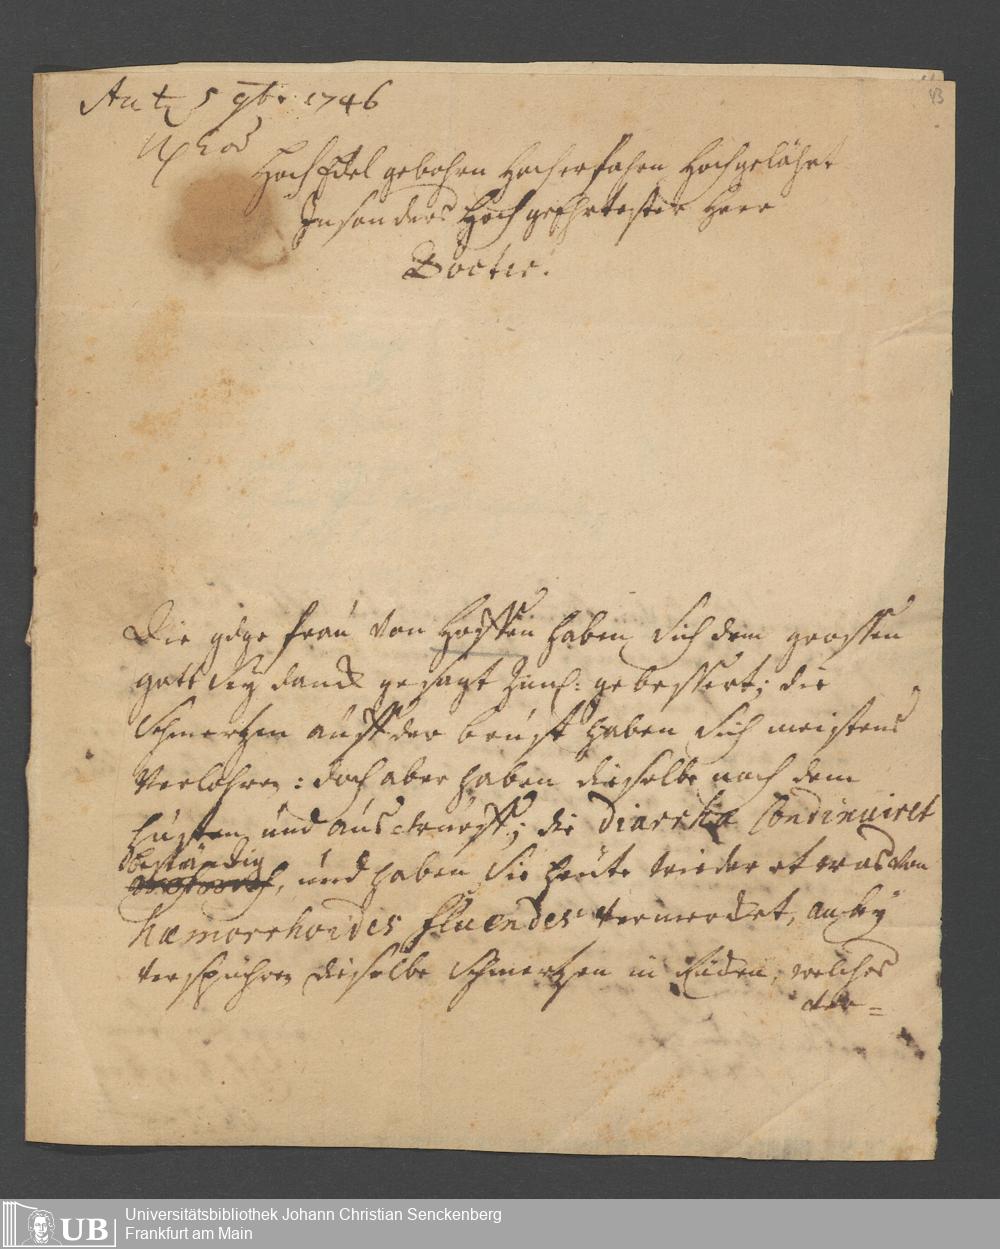 5 9br. 1746
43
Hoch Edel gebohrn Hocherfahrn Hochgelährt
Insonders Hochgeehrtester Herr
Doctor.
Die gdge frau von haben sich dem grossen
gott sey danck gesagt gebessert; die
Schmertzen auff der brust haben sich meistens
Verlohren: doch aber haben dieselbe noch dem
husten und ; die diarrhæ Condinuiret
beständig
und haben Sie heute wieder etwas von
hæmorrhoides fluendes vermercket, anbey
verspühren dieselbe Schmertzen in , welches
der=
UB
Universitätsbibliothek Johann Christian Senckenberg
Frankfurt am Main